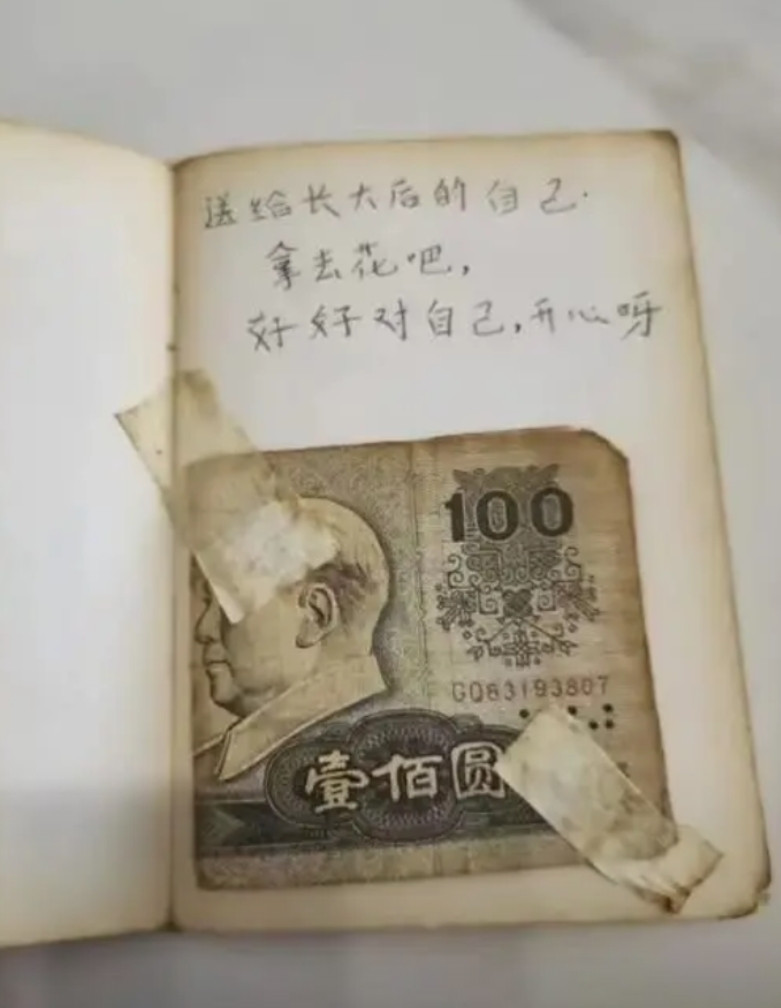 送给长大后的自己.
拿去花吧,
好好对自己,开心呀
100
GQ83193807
壹佰圆